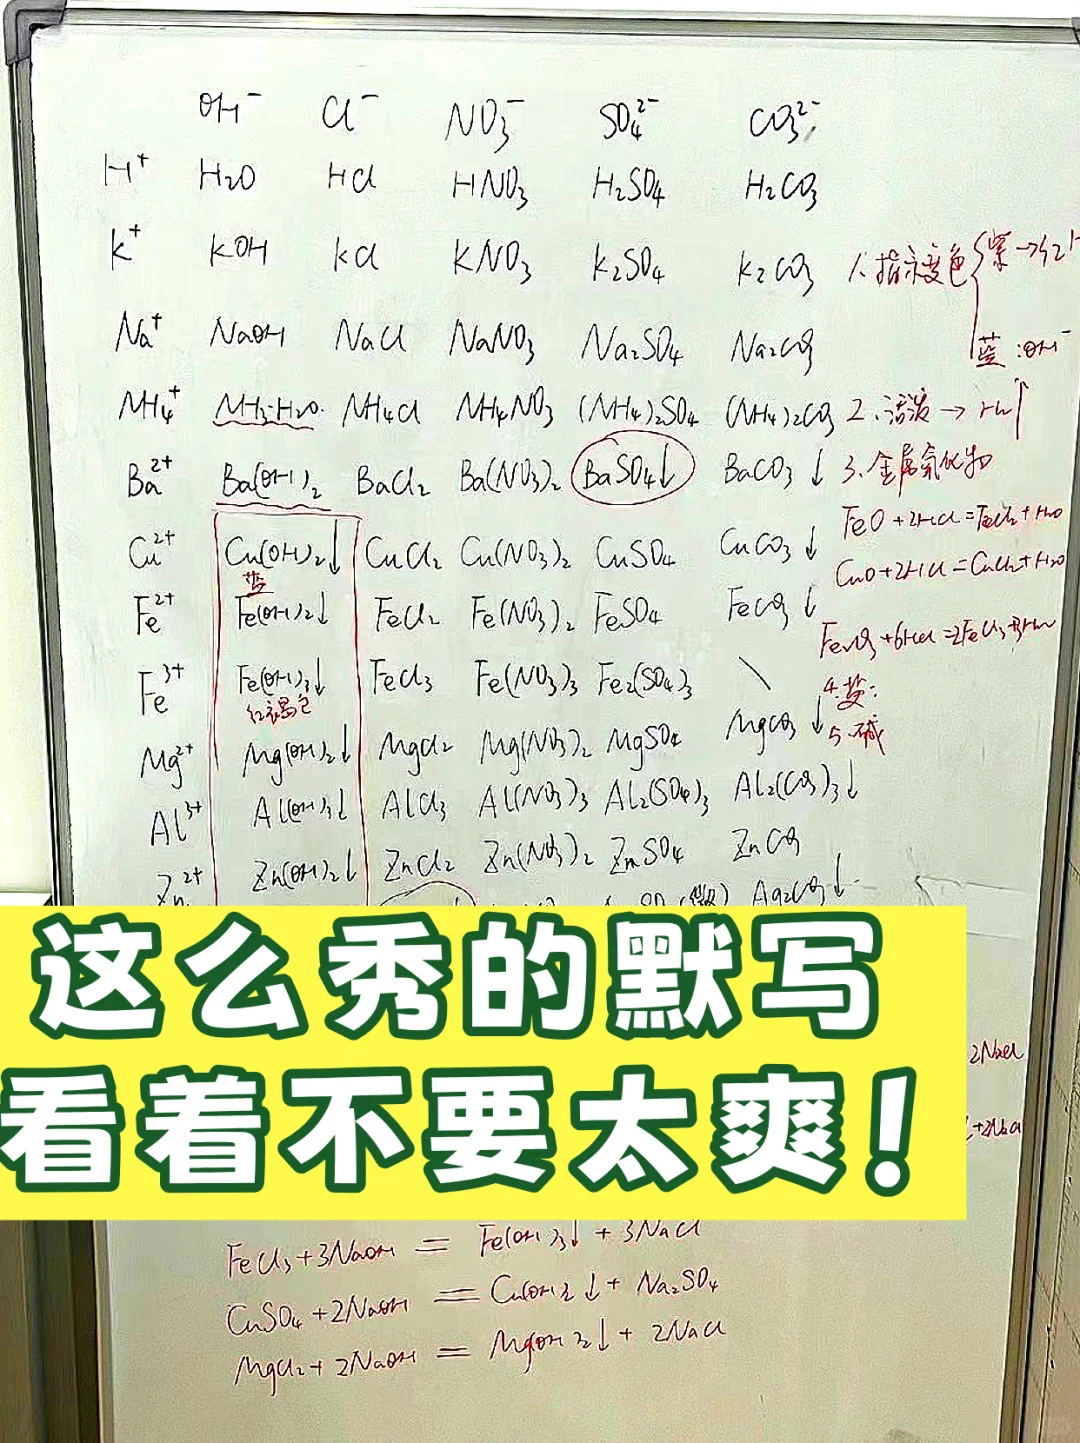 OH⁻ Cl⁻ NO₃⁻ SO₄²⁻ CO₃²⁻
H⁺ H₂O HCl HNO₃ H₂SO₄ H₂CO₃
K⁺ KOH KCl KNO₃ K₂SO₄ K₂CO₃
Na⁺ NaOH NaCl NaNO₃ Na₂SO₄ Na₂CO₃
NH₄⁺ NH₃·H₂O NH₄Cl NH₄NO₃ (NH₄)₂SO₄ (NH₄)₂CO₃
Ba²⁺ Ba(OH)₂ BaCl₂ Ba(NO₃)₂ BaSO₄↓ BaCO₃↓
Cu²⁺ Cu(OH)₂↓ CuCl₂ Cu(NO₃)₂ CuSO₄ CuCO₃↓
蓝
Fe²⁺ Fe(OH)₂↓ FeCl₂ Fe(NO₃)₂ FeSO₄ FeCO₃↓
Fe³⁺ Fe(OH)₃↓ FeCl₃ Fe(NO₃)₃ Fe₂(SO₄)₃ \
红褐色
Mg²⁺ Mg(OH)₂↓ MgCl₂ Mg(NO₃)₂ MgSO₄ MgCO₃↓
Al³⁺ Al(OH)₃↓ AlCl₃ Al(NO₃)₃ Al₂(SO₄)₃ Al₂(CO₃)₃↓
Zn²⁺ Zn(OH)₂↓ ZnCl₂ Zn(NO₃)₂ ZnSO₄ ZnCO₃
(微) Ag₂CO₃↓
1.指示变色 紫→红 H
蓝:OH⁻
2.活泼→H₂↑
3.金属氧化物
FeO+2HCl=FeCl₂+H₂O
CuO+2HCl=CuCl₂+H₂O
Fe₂O₃+6HCl=2FeCl₃+3H₂O
4.盐:
5.碱
这么秀的默写
看着不要太爽!
2NaCl
+2NaCl
FeCl₃+3NaOH=Fe(OH)₃↓+3NaCl
CuSO₄+2NaOH=Cu(OH)₂↓+Na₂SO₄
MgCl₂+2NaOH=Mg(OH)₂↓+2NaCl